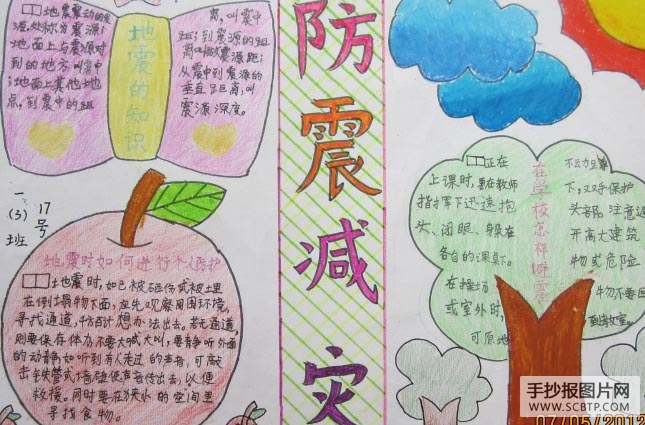 防震减灾
地震的知识
□□地震震动的发
源处称为震源;
地面上与震源对
到的地方叫震中
;地面上其他地
点,到震中的距
离,叫震中
距;到震源的距
离叫做震源距;
从震中到震源的
垂直距离,叫
震源深度。
一
(3)
班
17
号
地震时如何进行个人防护
□□地震时,如已被砸伤或被埋
在倒塌物下面,应先观察周围环境,
寻找通道,千方百计想办法出去。若无通道,
则要保存体力,不要大喊大叫,要静听外面
的动静,如听到有人走过的声音,可敲
击铁管或墙壁使声音传出去,以便
救援。同时要在狭小的空间里
寻找食物。
在学校怎样避震
□□正在
上课时,要在教师
指挥下迅速抱
头、闭眼、躲在
各自的课桌。
在操场
或室外时,
可原地
不动蹲
下,双手保护
头部,注意避
开高大建筑
物或危险
物不要回
到教室。
手抄报图片网
WWW.SCBTP.COM
07/05/2012